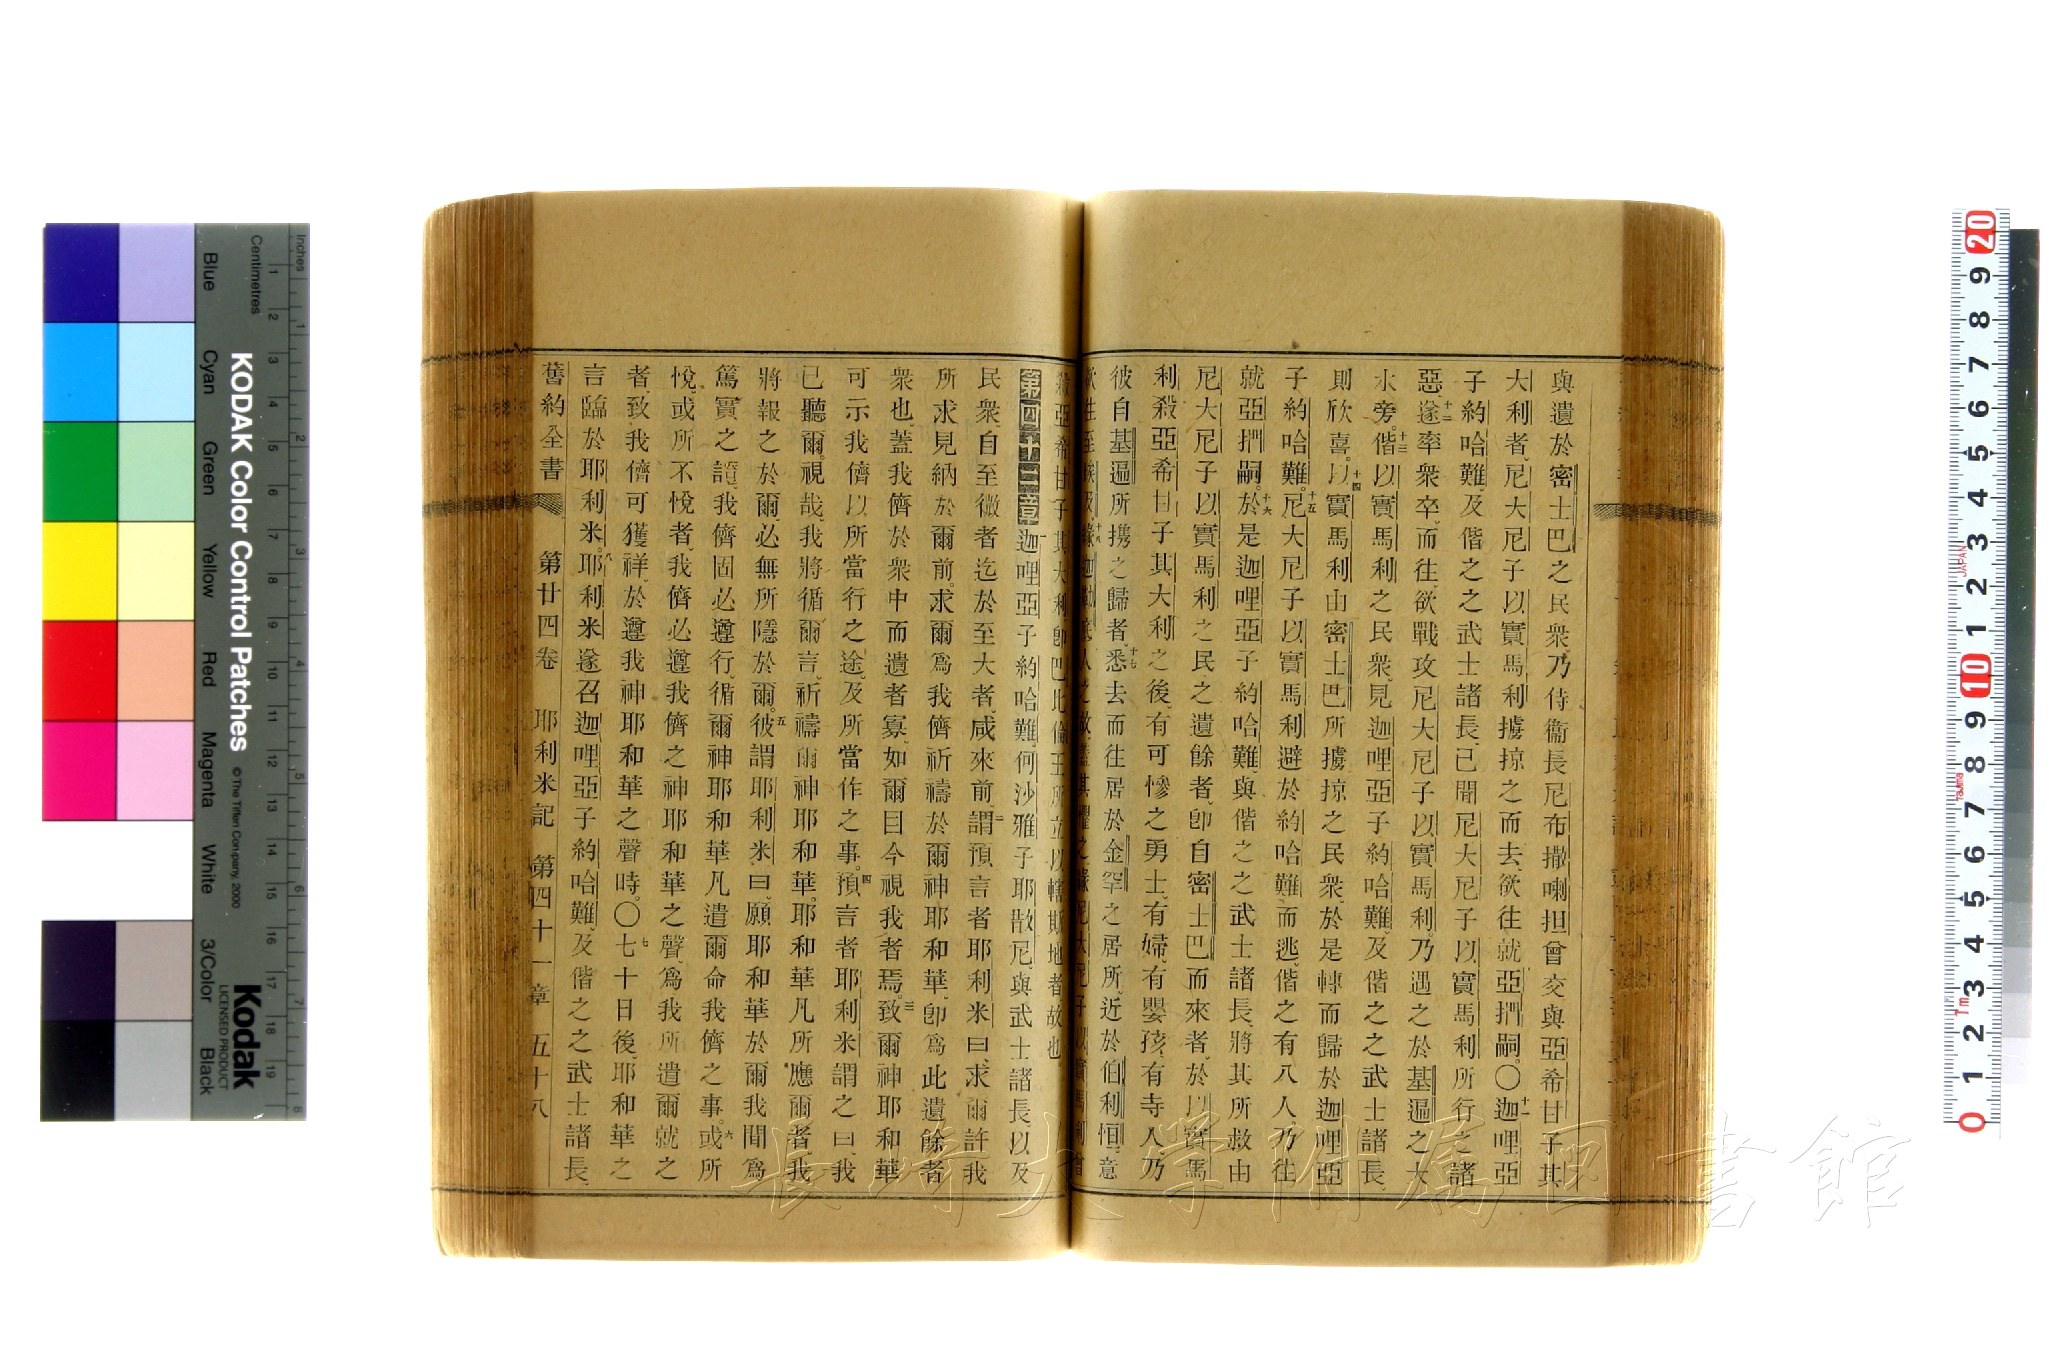 與遺於密士巴之民衆、乃侍衞長尼布撒喇担曾交與亞希甘子其
大利者、尼大尼子以實馬利擄掠之而去、欲往就亞捫嗣。〇十一迦哩亞
子約哈難、及偕之之武士諸長、已聞尼大尼子以實馬利所行之諸
惡、十二遂率衆卒、而往、欲戰攻尼大尼子以實馬利。乃遇之於基遍之大
水旁。十三偕以實馬利之民衆、見迦哩亞子約哈難、及偕之之武士諸長、
則欣喜。十四以實馬利由密士巴所擄掠之民衆、於是轉而歸於迦哩亞
子約哈難。十五尼大尼子以實馬利避於約哈難而逃、偕之有八人乃往
就亞捫嗣。十六於是迦哩亞子約哈難、與偕之之武士諸長、將其所救由
尼大尼子以實馬利之民之遺餘者、卽自密士巴而來者、於以實馬
利殺亞希甘子其大利之後、有可慘之勇士、有婦、有嬰孩、有寺人乃
彼自基遍所携之歸者、十七悉去而往居於金罕之居所、近於伯利恒、意
民衆、自至微者迄於至大者、咸來前、二謂預言者耶利米曰、求爾許我
所求見納於爾前。求爾爲我儕祈禱於爾神耶和華、卽爲此遺餘者
衆也、蓋我儕於衆中而遺者寡、如爾目今視我者焉。三致爾神耶和華
可示我儕以所當行之途、及所當作之事。四預言者耶利米謂之曰、我
已聽爾。視哉、我將循爾言、祈禱爾神耶和華。耶和華凡所應爾者、我
將報之於爾、必無所隱於爾。五彼謂耶利米曰、願耶和華於爾我間爲
篤實之證、我儕固必遵行、循爾神耶和華凡遣爾命我儕之事。六或所
悅、或所不悅者、我儕必遵我儕之神耶和華之聲、爲我所遣爾就之
者、致我儕可獲祥、於遵我神耶和華之聲時。〇七十日後、耶和華之
言臨於耶利米。八耶利米遂召迦哩亞子約哈難、及偕之之武士諸長、
舊約全書 第廿四卷 耶利米記 第四十一章 五十八
KODAK Color Control Patches
© The Tiffen Company, 2000
Kodak
LICENSED PRODUCT
Inches
Centimetres
Blue
Cyan
Green
Yellow
Red
Magenta
White
3/Color
Black
長崎大學附屬図書館
JAPAN